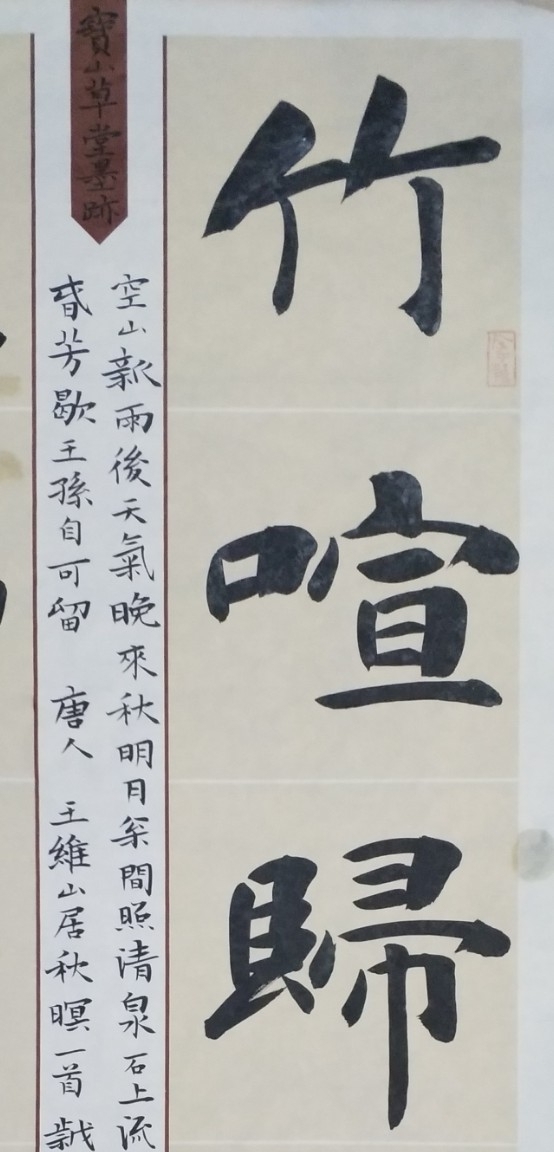 竹喧歸
寶山草堂墨跡
空山新雨後天氣晚來秋明月枀間照清泉石上流
春芳歇王孫自可留 唐人 王維山居秋暝一首